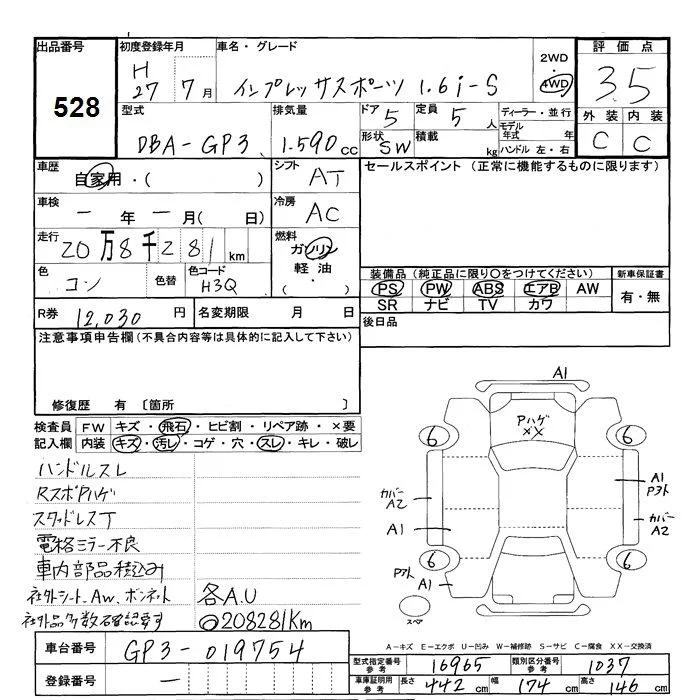 出品番号 528
初度登録年月 H 27 7月
車名・グレード インプレッサスポーツ 1.6i-S
2WD・4WD
評価点 3.5
外装 内装
C C
型式 DBA-GP3
排気量 1.590cc
ドア 5
定員 5人
形状 SW
積載 kg
ディーラー・並行
モデル年式 年
ハンドル 左・右
車歴 自家用・( )
シフト AT
車検 ー年ー月(日)
冷房 AC
走行 20万8千281km
燃料 ガソリン 軽油 ・( )
色 コン
色替
色コード H3Q
R券 12,030円
名変期限 月 日
セールスポイント (正常に機能するものに限ります)
装備品(純正品に限り○をつけてください)
PS PW ABS エアB AW
SR ナビ TV カワ
新車保証書 有・無
後日品
注意事項申告欄(不具合内容等は具体的に記入して下さい)
修復歴 有 〔箇所 〕
検査員記入欄
FW キズ・飛石・ヒビ割・リペア跡・×要
内装 キズ・汚レ・コゲ・穴・スレ・キレ・破レ
ハンドルスレ
RスポPハゲ
スタッドレスT
電格ミラー不良
車内部品積込み
社外シート、Aw、ボンネット 各A.U
社外品多数石確認要す ◎208281km
A1
Pハゲ
××
6 6
カバー A2
A1
Pヌケ
A1
カバー A2
6 6
A1
スペア
A-キズ E-エクボ U-凹み W-補修跡 S-サビ C-腐食 XX-交換済
車台番号 GP3-019754
登録番号 ー
型式指定番号 参考 16965
類別区分番号 参考 1037
車庫証明用 参考 長さ 442cm 幅 174cm 高さ 146cm